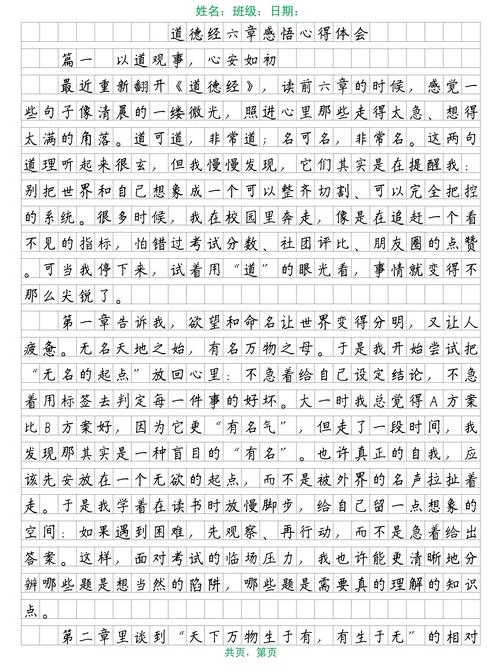 姓名：班级：日期：
道德经六章感悟心得体会
篇一 以道观事，心安如初
最近重新翻开《道德经》，读前六章的时候，感觉一
些句子像清晨的一缕微光，照进心里那些走得太急、想得
太满的角落。道可道，非常道；名可名，非常名。这两句
道理听起来很玄，但我慢慢发现，它们其实是在提醒我：
别把世界和自己想象成一个可以整齐切割、可以完全把控
的系统。很多时候，我在校园里奔走，像是在追赶一个看
不见的指标，怕错过考试分数、社团评比、朋友圈的点赞
。可当我停下来，试着用“道”的眼光看，事情就变得不
那么尖锐了。
第一章告诉我，欲望和命名让世界变得分明，又让人
疲惫。无名天地之始，有名万物之母。于是我开始尝试把
“无名的起点”放回心里：不急着给自己设定结论，不急
着用标签去判定每一件事的好坏。大一时我总觉得A方案
比B方案好，因为它更“有名气”，但走了一段时间，我
发现那其实是一种盲目的“有名”。也许真正的自我，应
该先安放在一个无欲的起点，而不是被外界的名声拉扯着
走。于是我学着在读书时放慢脚步，给自己留一点想象的
空间：如果遇到困难，先观察、再行动，而不是急着给出
答案。这样，面对考试的临场压力，我也许能更清晰地分
辨哪些题是想当然的陷阱，哪些题是需要真的理解的知识
点。
第二章里谈到“天下万物生于有，有生于无”的相对
共页，第页